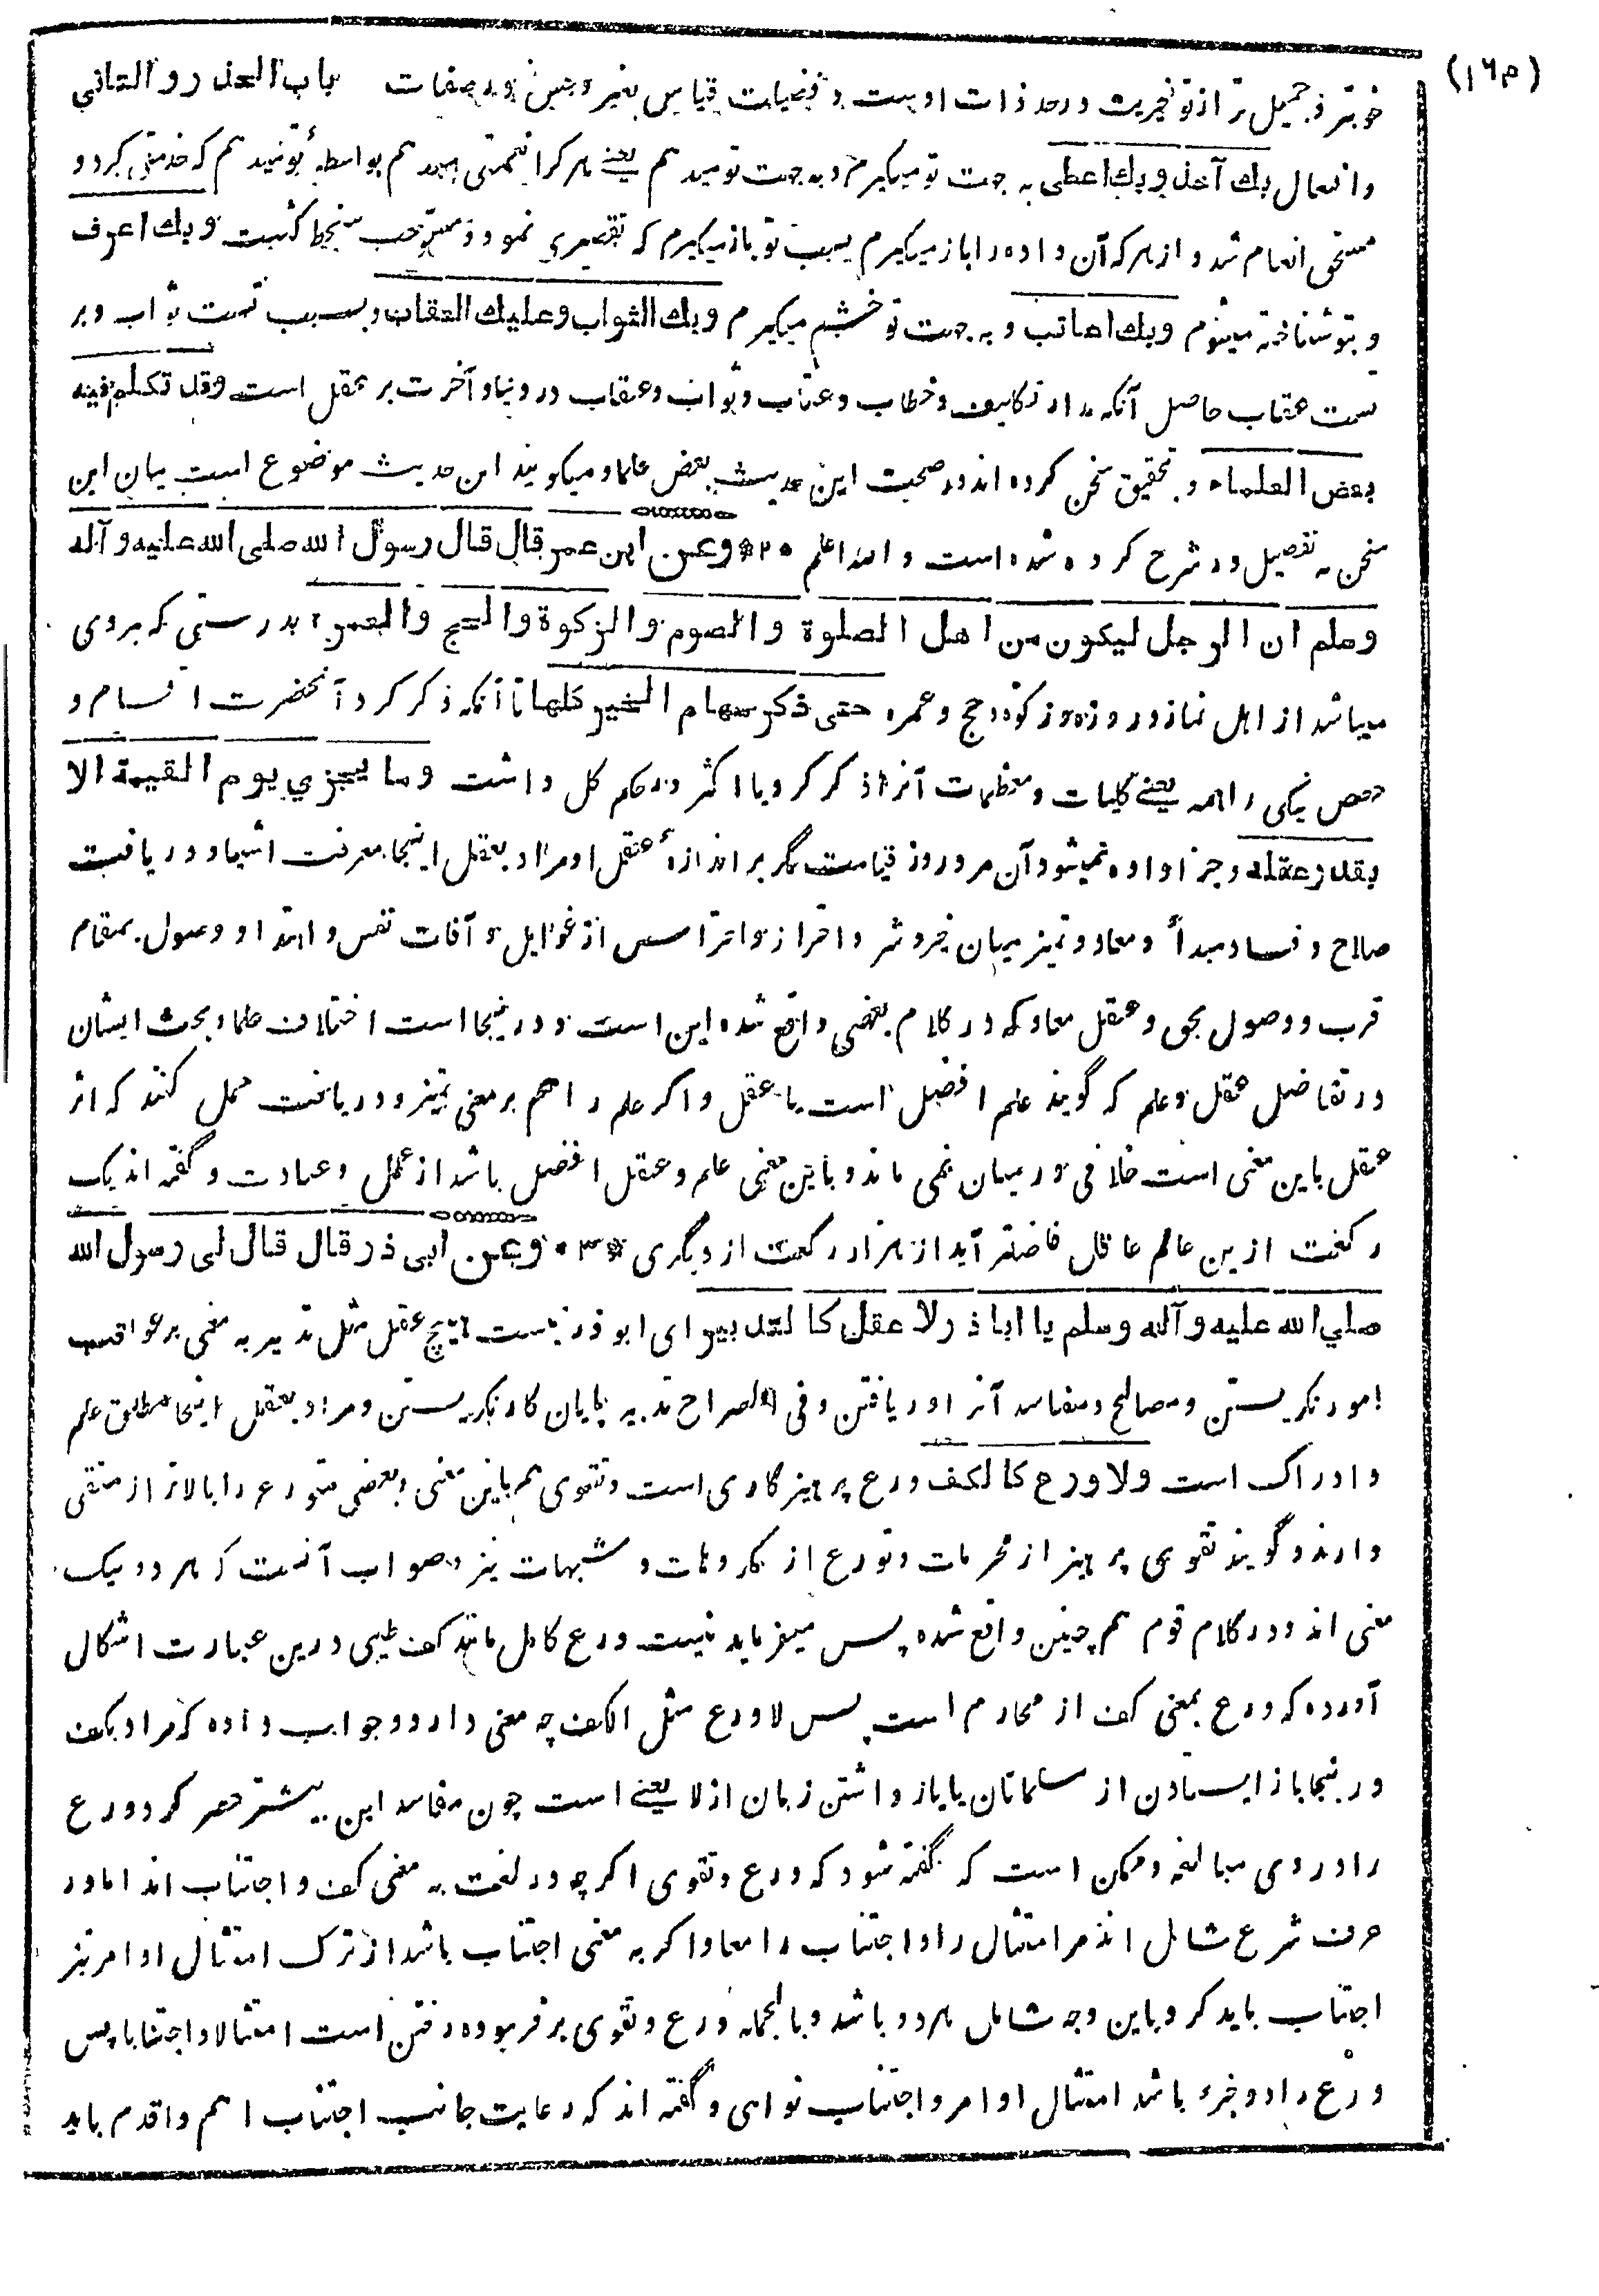 (م ١٦)
خوبتر و جمیل تر از تو خیریت در حد ذات اوست و فضیلت قیاس بغیر و جنس و صفات باب الحذر و التاني
و افعال بك آخذ وبك اعطى به جهت تو میگیرم و به جهت تو میدهم یعنے هر کرا نعمتی بدهم بواسطهٔ تو میدهم که خدمتی کرد و
مستحق انعام شد و از هر که آن داده را باز میگیرم بسبب تو باز میگیرم که تقصیری نمود و مستوجب سخط گشت وبك اعرف
و بتو شناخته میشوم وبك اعاتب و به جهت تو خشم میگیرم وبك الثواب وعليك العقاب و بسبب تست ثواب و بر
تست عقاب حاصل آنکه مدار تکلیف و خطاب و عتاب و ثواب و عقاب در دنیا و آخرت بر عقل است وقد تكلم فيه
بعض العلماء و بتحقیق سخن کرده اند در صحت این حدیث بعض علما و میگویند این حدیث موضوع است بیان این
سخن به تفصیل در شرح کرده شده است و الله اعلم * ۲۰ * وعن ابن عمر قال قال رسول الله صلى الله عليه و آله
وسلم ان الرجل ليكون من اهل الصلوة والصوم والزكوة والحج والعمرة بدرستی که مردی
میباشد از اهل نماز و روزه و زکوة و حج و عمره حتى ذكر سهام الخير كلها تا آنکه ذکر کرد آنحضرت اقسام و
حصص نیکی را همه یعنے کلیات و معظمات آنرا ذکر کرد یا اکثر در حکم کل داشت وما يجزي يوم القيمة الا
بقدر عقله و جزا داده نمیشود آن مرد روز قیامت مگر بر اندازهٔ عقل او مراد بعقل اینجا معرفت اشیا و دریافت
صلاح و فساد مبدأ و معاد و تمیز میان خیر و شر و احتراز و احتراس از غوایل و آفات نفس و اهتدا و وصول بمقام
قرب و وصول بحق و عقل معاد که در کلام بعضی واقع شده این است و در ینجا است اختلاف علما و بحث ایشان
در تفاضل عقل و علم که گویند علم افضل است یا عقل و اگر علم را هم بر معنی تمیز و دریافت حمل کنند که اثر
عقل باین معنی است خلافی در میان نمی ماند و باین معنی علم و عقل افضل باشد از عمل و عبادت و گفته اند یک
رکعت ازین عالم عاقل فاضلتر آید از هزار رکعت از دیگری * ۳۰ * وعن ابى ذر قال قال لى رسول الله
صلي الله عليه وآله وسلم يا ابا ذر لا عقل كالتدبير ای ابو ذر نیست هیچ عقل مثل تدبیر به معنی بر عواقب
امور نگریستن و مصالح و مفاسد آنرا دریافتن و فی الصراح تدبیر پایان کار نگریستن و مراد بعقل اینجا مطلق علم
و ادراک است ولا ورع كالكف ورع پرهیزگاری است و تقوی هم باین معنی و بعضی متورع را بالاتر از متقی
دارند و گویند تقوی پرهیز از محرمات و تورع از مکروهات و شبهات نیز و صواب آنست که هر دو بیک
معنی اند و در کلام قوم هم چنین واقع شده پس میفرماید نیست ورع کامل مانند کف طیبی درین عبارت اشکال
آورده که ورع بمعنی کف از محارم است پس لا ورع مثل الکف چه معنی دارد و جواب داده که مراد بکف
در ینجا باز ایستادن از مسلمانان یا باز داشتن زبان از لا یعنے است چون مفاسد این بیشتر حصر کرد ورع
را در وی مبالغه و ممکن است که گفته شود که ورع و تقوی اگر چه در لغت به معنی کف و اجتناب اند اما در
عرف شرع شامل اند مر امتثال را و اجتناب را معا و اگر به معنی اجتناب باشد از ترک امتثال اوامر نیز
اجتناب باید کرد باین وجه شامل هر دو باشد و بالجمله ورع و تقوی بر فرموده رفتن است امتثالا و اجتنابا پس
ورع را دو جزء باشد امتثال اوامر و اجتناب نواهی و گفته اند که رعایت جانب اجتناب اهم و اقدم باید